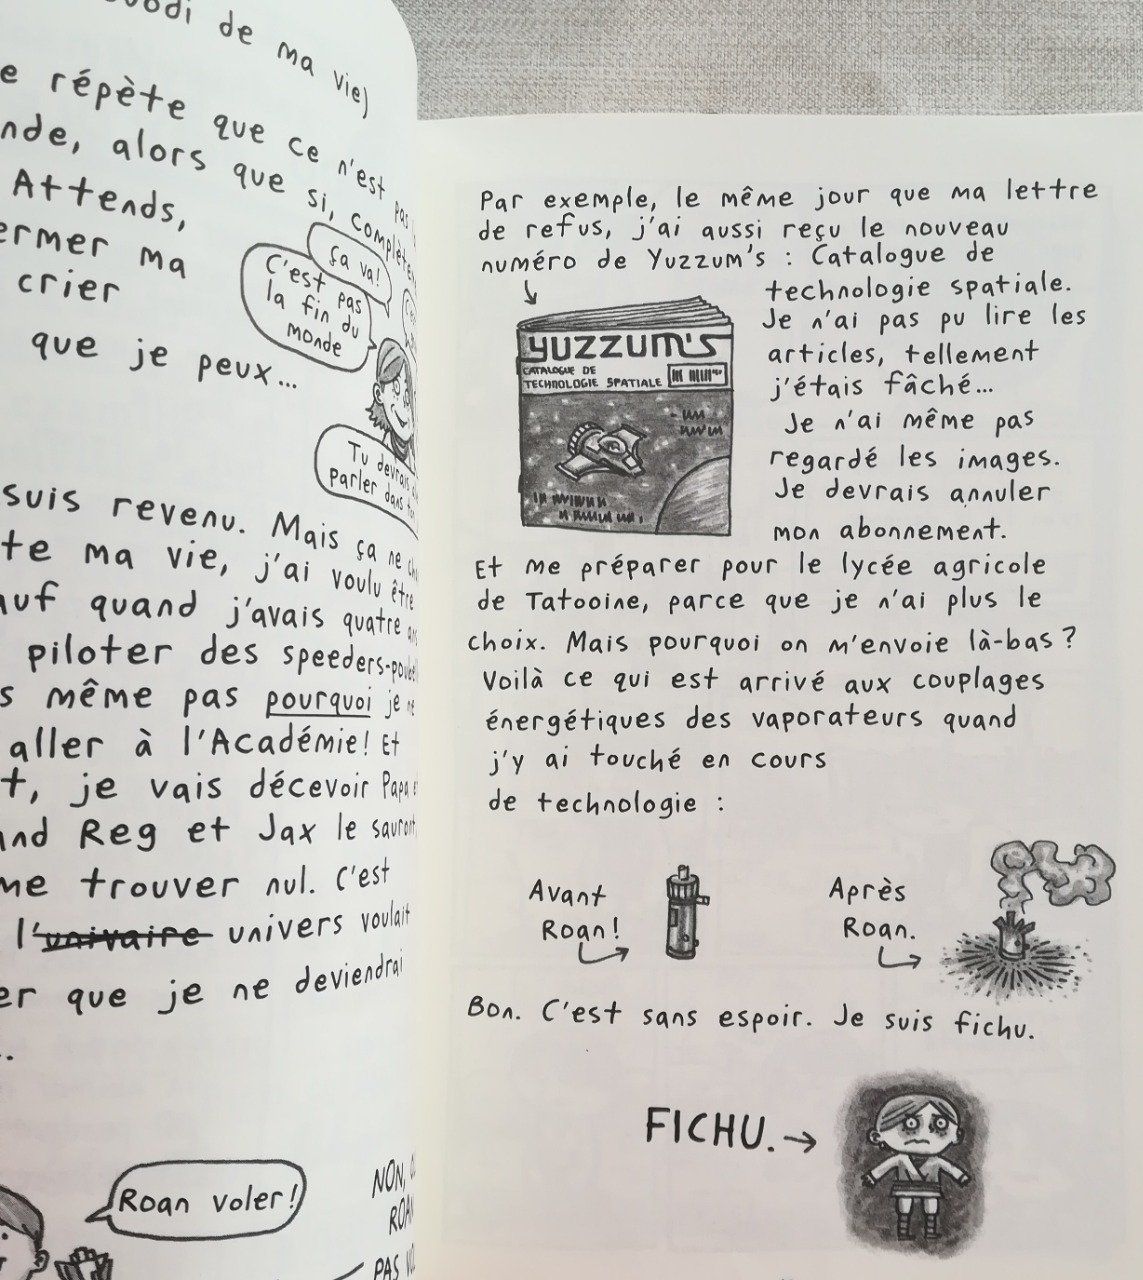 de ma vie)
répète que ce n'est pas
alors que si,
Attends,
ma
crier
que je peux...
ça va!
C'est pas
la fin du
monde
Tu
parler dans
suis revenu. Mais ça ne
ma vie, j'ai voulu être
quand j'avais quatre ans
piloter des
même pas pourquoi je ne
aller à l'Académie! Et
je vais décevoir Papa
Reg et Jax le sauront
me trouver nul. C'est
l'univaire univers voulait
que je ne deviendrai
Roan voler!
NON,
PAS
Par exemple, le même jour que ma lettre
de refus, j'ai aussi reçu le nouveau
numéro de Yuzzum's : Catalogue de
technologie spatiale.
Je n'ai pas pu lire les
articles, tellement
j'étais fâché...
Je n'ai même pas
regardé les images.
Je devrais annuler
mon abonnement.
YUZZUM'S
CATALOGUE DE
TECHNOLOGIE SPATIALE
Et me préparer pour le lycée agricole
de Tatooine, parce que je n'ai plus le
choix. Mais pourquoi on m'envoie là-bas ?
Voilà ce qui est arrivé aux couplages
énergétiques des vaporateurs quand
j'y ai touché en cours
de technologie :
Avant
Roan!
Après
Roan.
Bon. C'est sans espoir. Je suis fichu.
FICHU.